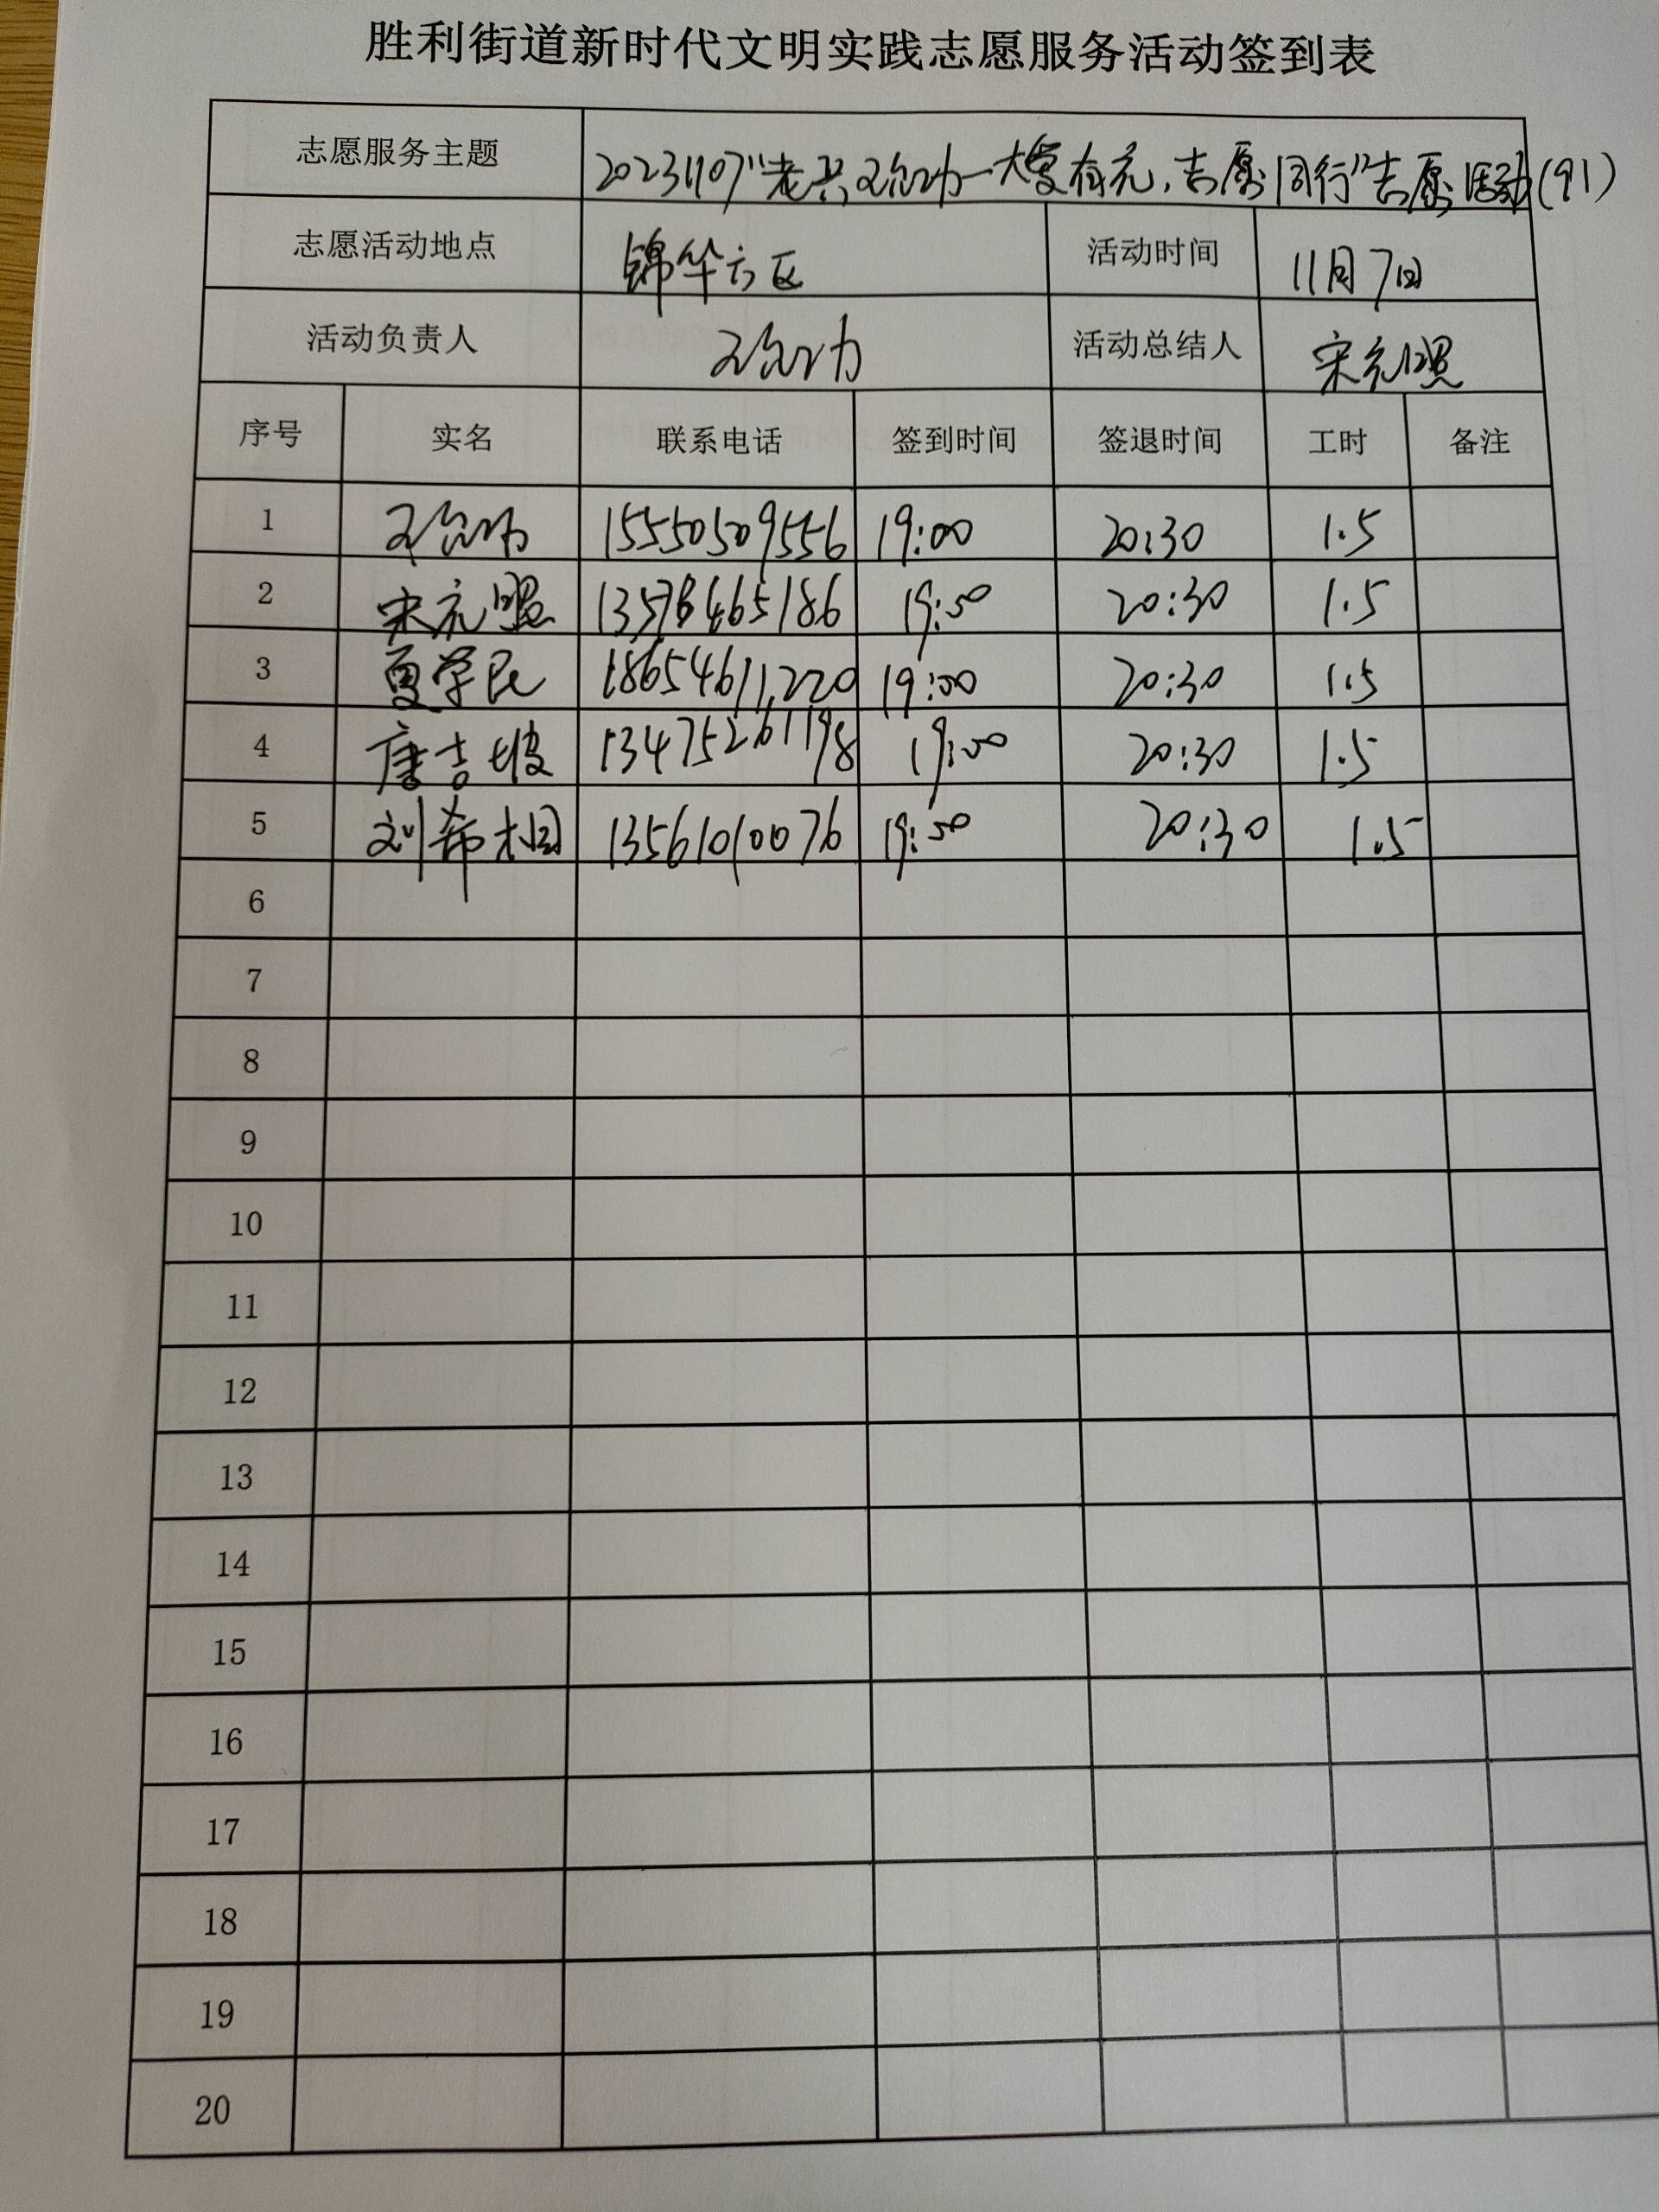 胜利街道新时代文明实践志愿服务活动签到表
志愿服务主题 20231107"老兵 一大爱有 ,志愿同行"志愿活动(91)
志愿活动地点 锦华六区 活动时间 11月7日
活动负责人 活动总结人 宋元照
序号 实名 联系电话 签到时间 签退时间 工时 备注
1 15550509556 19:00 20:30 1.5
2 宋元照 19:00 20:30 1.5
3 夏学民 18654611220 19:00 20:30 1.5
4 唐吉坡 13475261198 19:00 20:30 1.5
5 刘希相 13561010076 19:00 20:30 1.5
6
7
8
9
10
11
12
13
14
15
16
17
18
19
20